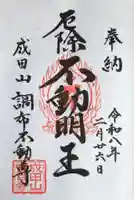 奉納
令和八年
二月廿六日
厄除
不動明王
成田山
調布不動尊